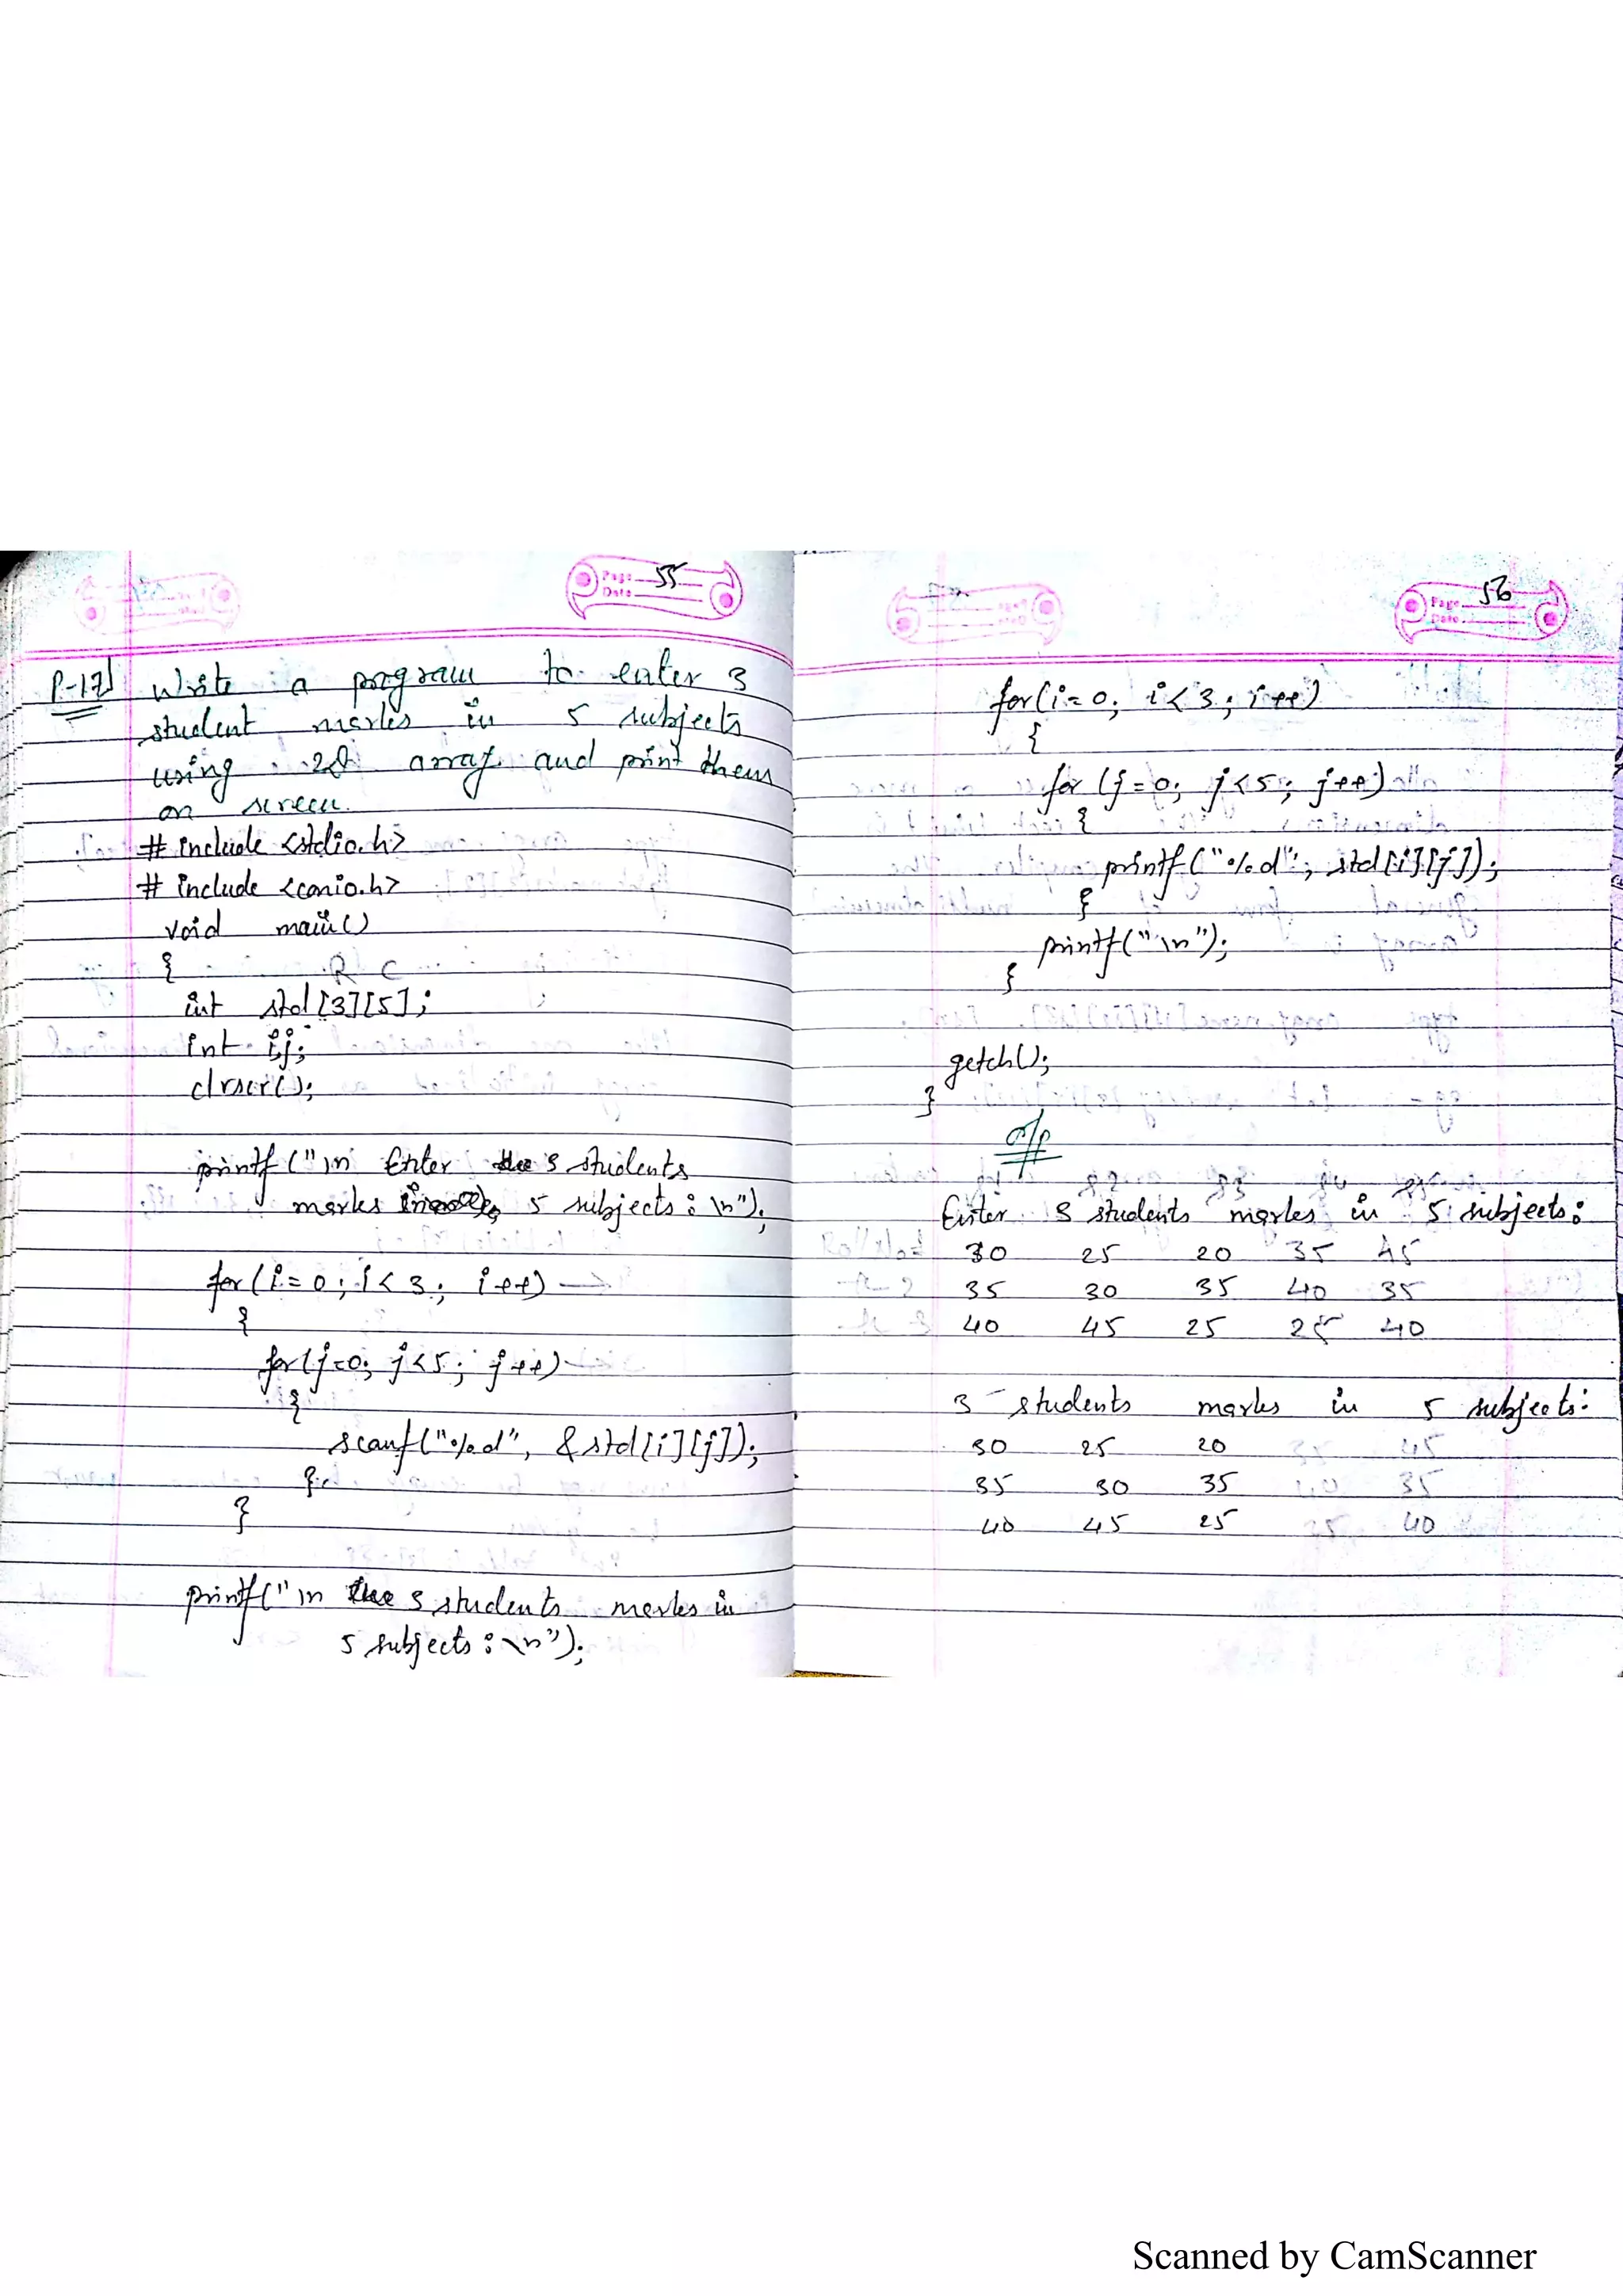 Page 55
Date
P-17] Write a program to enter 3
student marks in 5 subjects
using 2D array and print them
on screen.
# include <stdio.h>
# include <conio.h>
void main()
{
R C
int std[3][5];
int i,j;
clrscr();
printf("\n Enter 3 students
marks in 5 subjects : \n");
for(i=0; i<3; i++)
{
for(j=0; j<5; j++)
{
scanf("%d", &std[i][j]);
}
}
printf("\n 3 students marks in
5 subjects : \n");
Page 56
Date
for(i=0; i<3; i++)
{
for (j=0; j<5; j++)
{
printf("%d", std[i][j]);
}
printf("\n");
}
getch();
}
O/P
Enter 3 students marks in 5 subjects:
30 25 20 35 45
35 30 35 40 35
40 45 25 25 40
3 students marks in 5 subjects:
30 25 20 35 45
35 30 35 40 35
40 45 25 25 40
Scanned by CamScanner